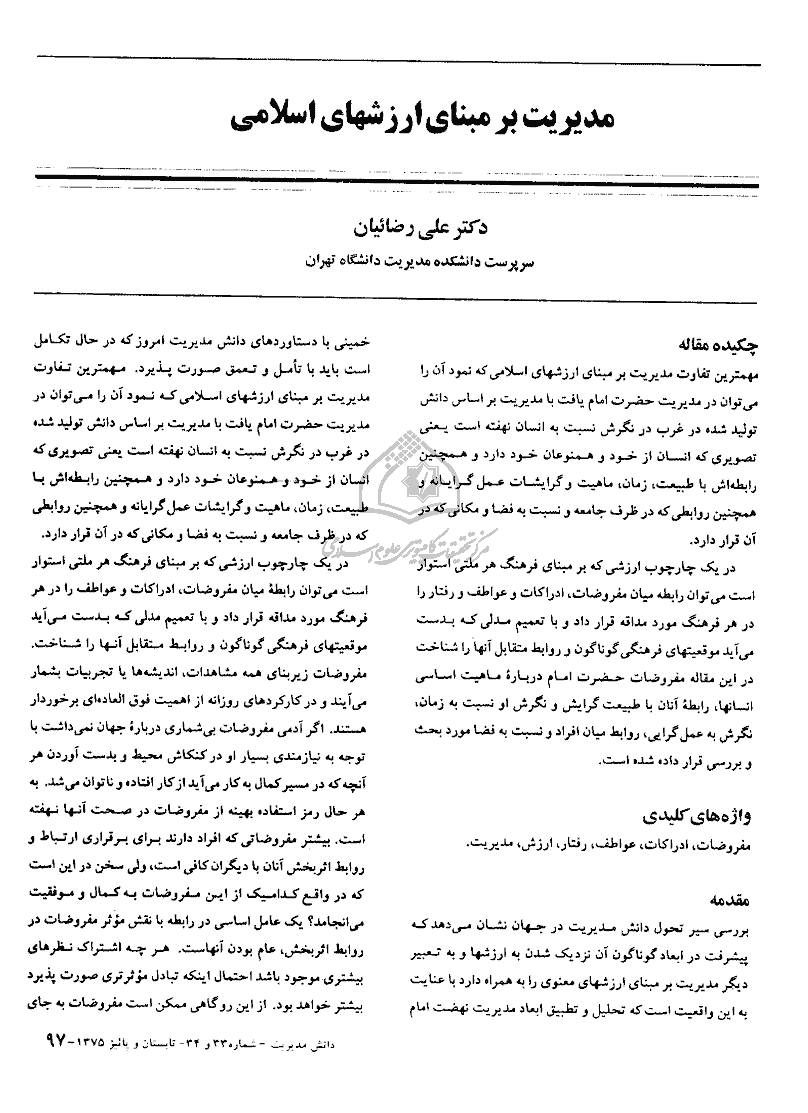 مدیریت بر مبنای ارزشهای اسلامی
دکتر علی رضائیان
سرپرست دانشکده مدیریت دانشگاه تهران
چکیده مقاله
مهمترین تفاوت مدیریت بر مبنای ارزشهای اسلامی که نمود آن را
می‌توان در مدیریت حضرت امام یافت با مدیریت بر اساس دانش
تولید شده در غرب در نگرش نسبت به انسان نهفته است یعنی
تصویری که انسان از خود و همنوعان خود دارد و همچنین
رابطه‌اش با طبیعت، زمان، ماهیت و گرایشات عمل گرایانه و
همچنین روابطی که در ظرف جامعه و نسبت به فضا و مکانی که در
آن قرار دارد.
در یک چارچوب ارزشی که بر مبنای فرهنگ هر ملتی استوار
است می‌توان رابطه میان مفروضات، ادراکات و عواطف و رفتار را
در هر فرهنگ مورد مداقه قرار داد و با تعمیم مدلی که بدست
می‌آید موقعیتهای فرهنگی گوناگون و روابط متقابل آنها را شناخت
در این مقاله مفروضات حضرت امام دربارهٔ ماهیت اساسی
انسانها، رابطهٔ آنان با طبیعت گرایش و نگرش او نسبت به زمان،
نگرش به عمل‌گرایی، روابط میان افراد و نسبت به فضا مورد بحث
و بررسی قرار داده شده است.
واژه‌های کلیدی
مفروضات، ادراکات، عواطف، رفتار، ارزش، مدیریت.
مقدمه
بررسی سیر تحول دانش مدیریت در جهان نشان می‌دهد که
پیشرفت در ابعاد گوناگون آن نزدیک شدن به ارزشها و به تعبیر
دیگر مدیریت بر مبنای ارزشهای معنوی را به همراه دارد با عنایت
به این واقعیت است که تحلیل و تطبیق ابعاد مدیریت نهضت امام
خمینی با دستاوردهای دانش مدیریت امروز که در حال تکامل
است باید با تأمل و تعمق صورت پذیرد. مهمترین تفاوت
مدیریت بر مبنای ارزشهای اسلامی که نمود آن را می‌توان در
مدیریت حضرت امام یافت با مدیریت بر اساس دانش تولید شده
در غرب در نگرش نسبت به انسان نهفته است یعنی تصویری که
انسان از خود و همنوعان خود دارد و همچنین رابطه‌اش با
طبیعت، زمان، ماهیت و گرایشات عمل گرایانه و همچنین روابطی
که در ظرف جامعه و نسبت به فضا و مکانی که در آن قرار دارد.
در یک چارچوب ارزشی که بر مبنای فرهنگ هر ملتی استوار
است می‌توان رابطهٔ میان مفروضات، ادراکات و عواطف را در هر
فرهنگ مورد مداقه قرار داد و با تعمیم مدلی که بدست می‌آید
موقعیتهای فرهنگی گوناگون و روابط متقابل آنها را شناخت.
مفروضات زیربنای همه مشاهدات، اندیشه‌ها یا تجربیات بشمار
می‌آیند و در کارکردهای روزانه از اهمیت فوق العاده‌ای برخوردار
هستند. اگر آدمی مفروضات بی‌شماری دربارهٔ جهان نمی‌داشت با
توجه به نیازمندی بسیار او در کنکاش محیط و بدست آوردن هر
آنچه که در مسیر کمال به کار می‌آید از کار افتاده و ناتوان می‌شد. به
هر حال رمز استفاده بهینه از مفروضات در صحت آنها نهفته
است. بیشتر مفروضاتی که افراد دارند برای برقراری ارتباط و
روابط اثربخش آنان با دیگران کافی است، ولی سخن در این است
که در واقع کدامیک از این مفروضات به کمال و موفقیت
می‌انجامد؟ یک عامل اساسی در رابطه با نقش مؤثر مفروضات در
روابط اثربخش، عام بودن آنهاست. هر چه اشتراک نظرهای
بیشتری موجود باشد احتمال اینکه تبادل مؤثرتری صورت پذیرد
بیشتر خواهد بود. از این روگاهی ممکن است مفروضات به جای
دانش مدیریت - شماره ۳۳ و ۳۴- تابستان و پائیز ۱۳۷۵-۹۷
مرکز تحقیقات کامپیوتری علوم اسلامی